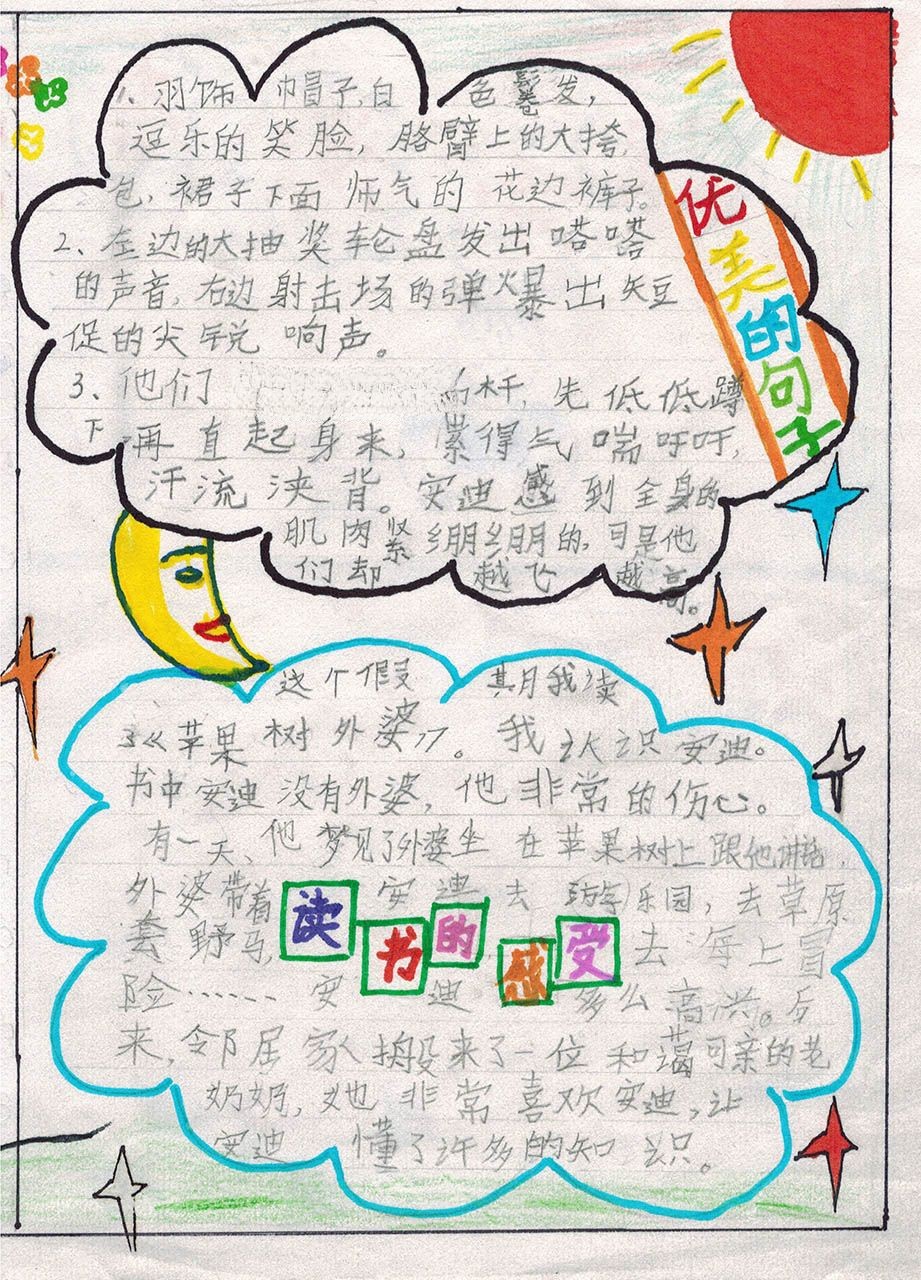 1、羽饰 巾冒子,白 色鬈发,
逗乐的笑脸,胳臂上的大挎
包,裙子下面师气的花边裤子。
2、左边的大抽奖轮盘发出嗒嗒
的声音,右边射击场的弹爆出矢豆
促的尖锐响声。
3、他们 先低低蹲
下再直起身来,累得气喘吁吁,
汗流浃背。安迪感到全身的
肌肉紧绷绷的,可是他
们却越飞越高。
优美的句子
这个假期我读
《苹果树外婆》。我认识安迪。
书中安迪没有外婆,他非常的伤心。
有一天、他梦见了外婆坐在苹果树上跟他讲话,
外婆带着安迪去游乐园,去草原
套野马, 去海上冒
险……安迪多么高兴。后
来,邻居家搬来了一位和蔼可亲的老
奶奶,她非常喜欢安迪,让
安迪懂了许多的知识。
读书的感受